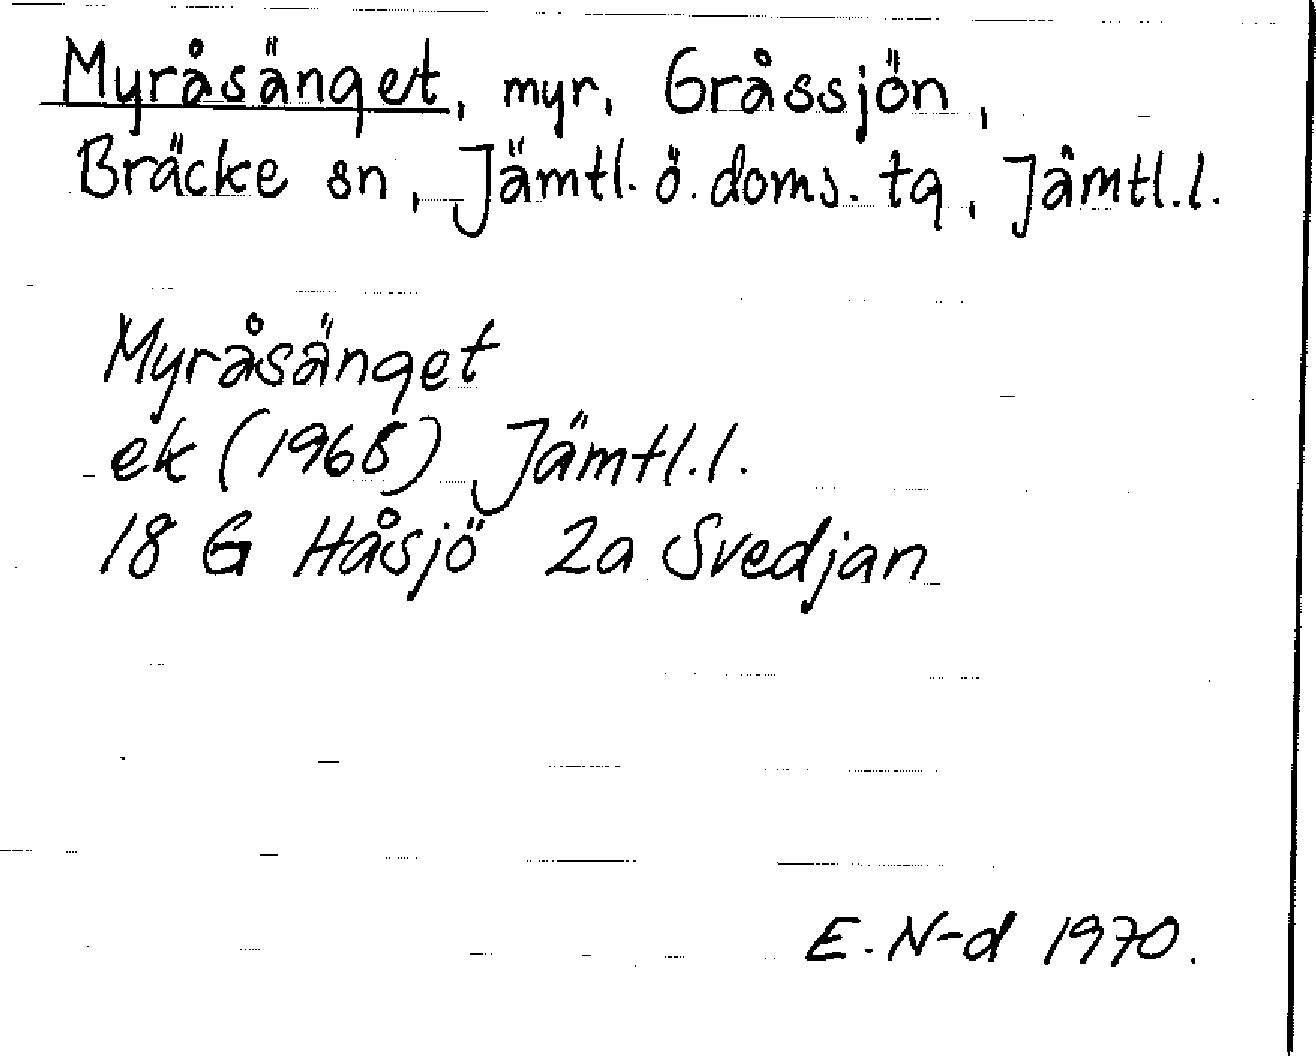 Myråsänget, myr, Gråssjön,
Bräcke sn, Jämtl. ö. doms. tg, Jämtl.l.
Myråsänget
ek (1968) Jämtl.l.
18 G Håsjö 2a Svedjan
E. N-d 1970.